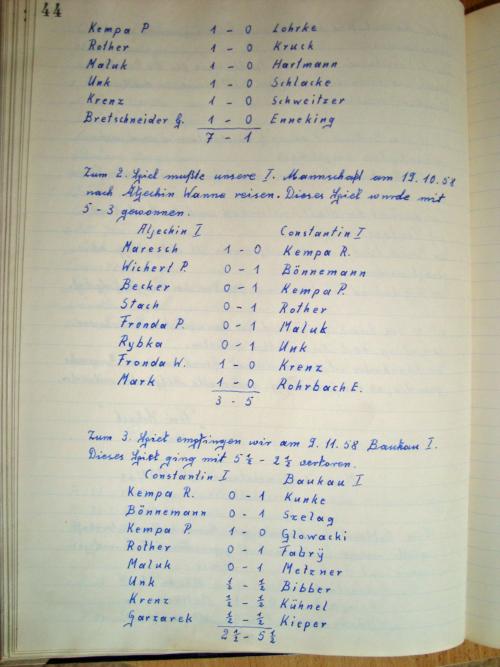 44
Kempa P 1 - 0 Lohrke
Rother 1 - 0 Kruck
Maluk 1 - 0 Hartmann
Unk 1 - 0 Schlacke
Krenz 1 - 0 Schweitzer
Bretschneider G. 1 - 0 Enneking
7 - 1
Zum 2. Spiel mußte unsere I. Mannschaft am 19.10.58
nach Aljechin Wanne reisen. Dieses Spiel wurde mit
5 - 3 gewonnen.
Aljechin I Constantin I
Maresch 1 - 0 Kempa R.
Wichert P. 0 - 1 Bönnemann
Becker 0 - 1 Kempa P.
Stach 0 - 1 Rother
Fronda P. 0 - 1 Maluk
Rybka 0 - 1 Unk
Fronda W. 1 - 0 Krenz
Mark 1 - 0 Rohrbach E.
3 - 5
Zum 3. Spiel empfingen wir am 9.11.58 Baukau I.
Dieses Spiel ging mit 5 ½ - 2 ½ verloren.
Constantin I Baukau I
Kempa R. 0 - 1 Kunke
Bönnemann 0 - 1 Szelag
Kempa P. 1 - 0 Glowacki
Rother 0 - 1 Fabrÿ
Maluk 0 - 1 Metzner
Unk ½ - ½ Bibber
Krenz ½ - ½ Kühnel
Garzarek ½ - ½ Kieper
2 ½ - 5 ½